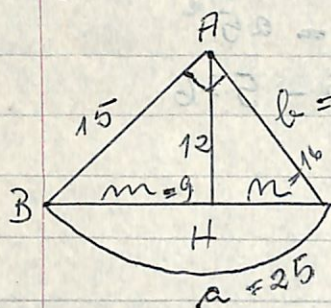 A
15
b =
12
m = 9
n = 16
B
H
a = 25